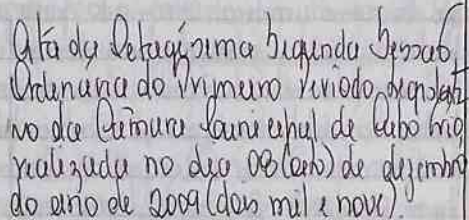 Ata da Setuagésima Segunda Sessão
Ordinária do Primeiro Período Legislati
vo da Câmara Municipal de Cabo Frio
realizada no dia 08 (oito) de dezembro
do ano de 2009 (dois mil e nove).